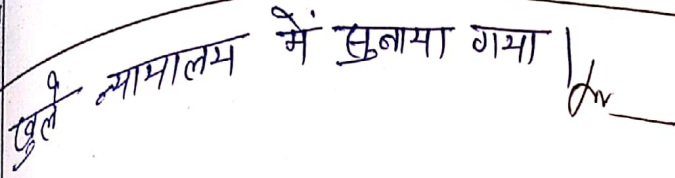 खुले न्यायालय में सुनाया गया।